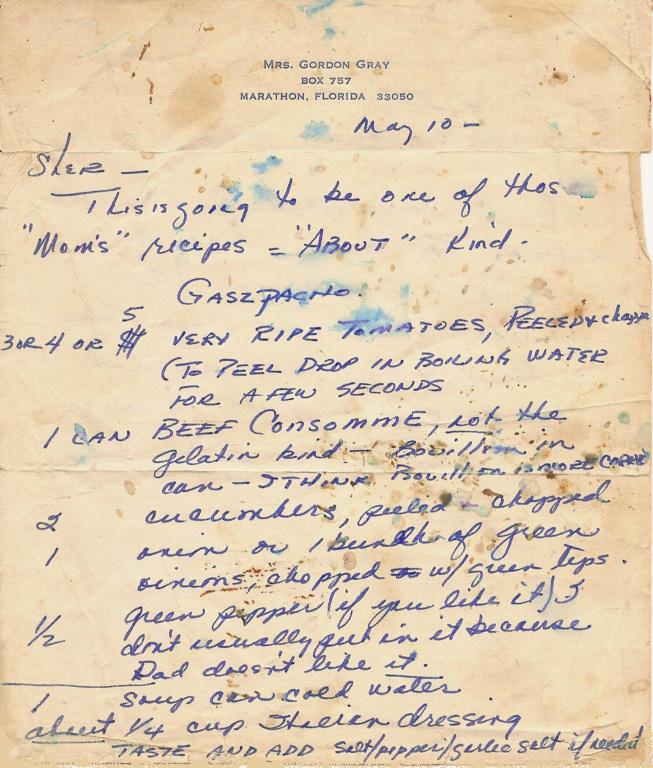 MRS. GORDON GRAY
BOX 757
MARATHON, FLORIDA 33050
May 10 –
Sher –
This is going to be one of thos
"Mom's" recipes = "ABOUT" kind.
GASZPACHO.
5
3 OR 4 OR VERY RIPE TOMATOES, PEELED &
(TO PEEL DROP IN BOILING WATER
FOR A FEW SECONDS
1 CAN BEEF CONSOMME, not the
gelatin kind – Bouillon in
can – I THINK Bouillon is MORE
2 cucumbers, peeled – chopped
1 onion or 1 bunch of green
onions, chopped w/ green tips.
1/2 green pepper (if you like it) I
don't usually put in it because
Dad doesn't like it.
1 soup can cold water
about 1/4 cup Italian dressing
TASTE AND ADD salt/pepper/garlic salt if needed